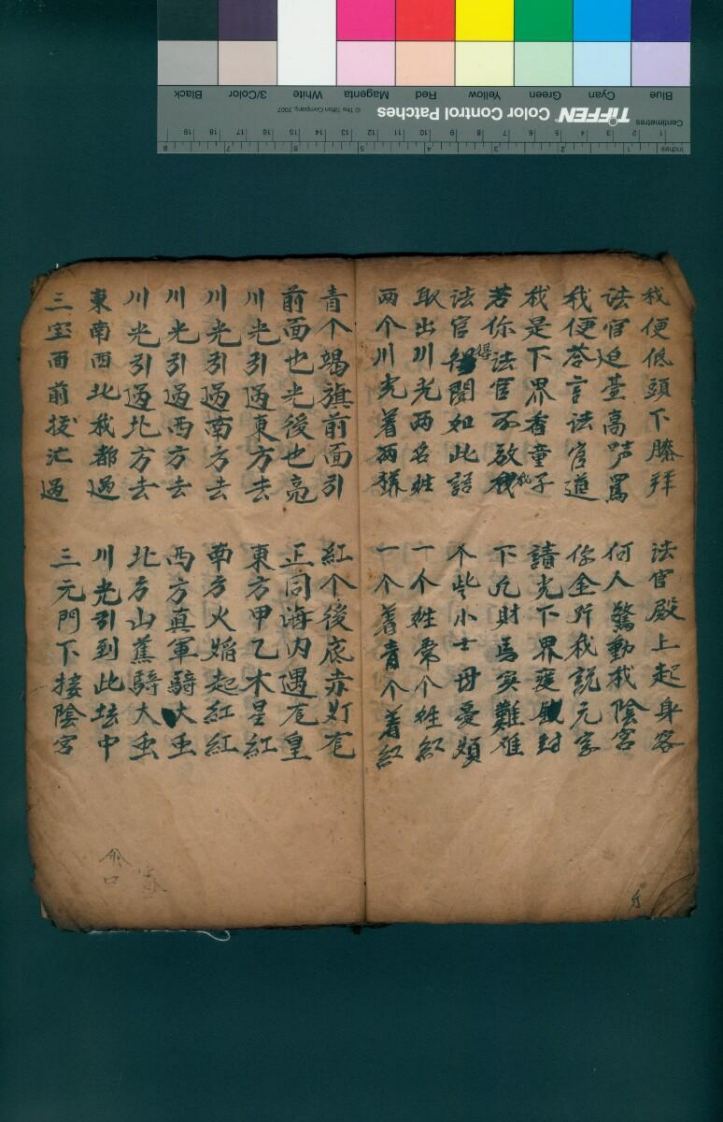 我便低頭下膝拜 法官殿上起身容
法官迫臺高声罵 何人驚動我陰宮
我便荅言法官道 你金所我說元家
我是下界香童子 請光下界
若你法官不放我 下凡財馬实難准
法官得聞如此語 个些小士母憂煩
取出川光两名姓 一个姓常个姓紅
两个川光着两 一个着青个着紅
青个竭旗前面引 紅个後底赤灯
前面也光後也亮 正同海内遇 皇
川光引過東方去 東方甲乙木星紅
川光引過南方去 南方火焰起紅紅
川光引過西方去 西方真軍騎大虫
川光引過北方去 北方山蕉騎大虫
東南西北我都過 川光引到此坛中
三宝面前 汇過 三元門下接陰宮
Blue Cyan Green Yellow Red Magenta White 3/Color Black
TIFFEN Color Control Patches
© The Tiffen Company, 2007
Centimetres
Inches